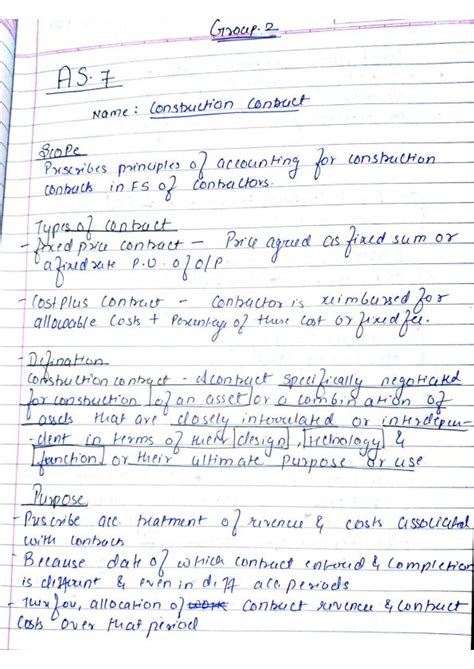 Group-2
AS.7
Name: Construction Contract
Scope
Prescribes principles of accounting for construction
contracts in FS of Contractors.
Types of Contract
- fixed price contract - Price agreed as fixed sum or
a fixed rate P.U. of O/P.
- Cost plus contract - Contractor is reimbursed for
allowable costs + Percentage of these cost or fixed fee.
- Defination
Construction contract - A contract specifically negotiated
for construction of an asset or a combination of
assets that are closely interrelated or interdepen-
-dent in terms of their design, technology &
function or their ultimate purpose or use
Purpose
- Prescribe acc. treatment of revenue & costs associated
with contracts
- Because date of which contract entered & completion
is different & even in diff acc. periods
- Therefore, allocation of contract revenue & contract
costs over that period